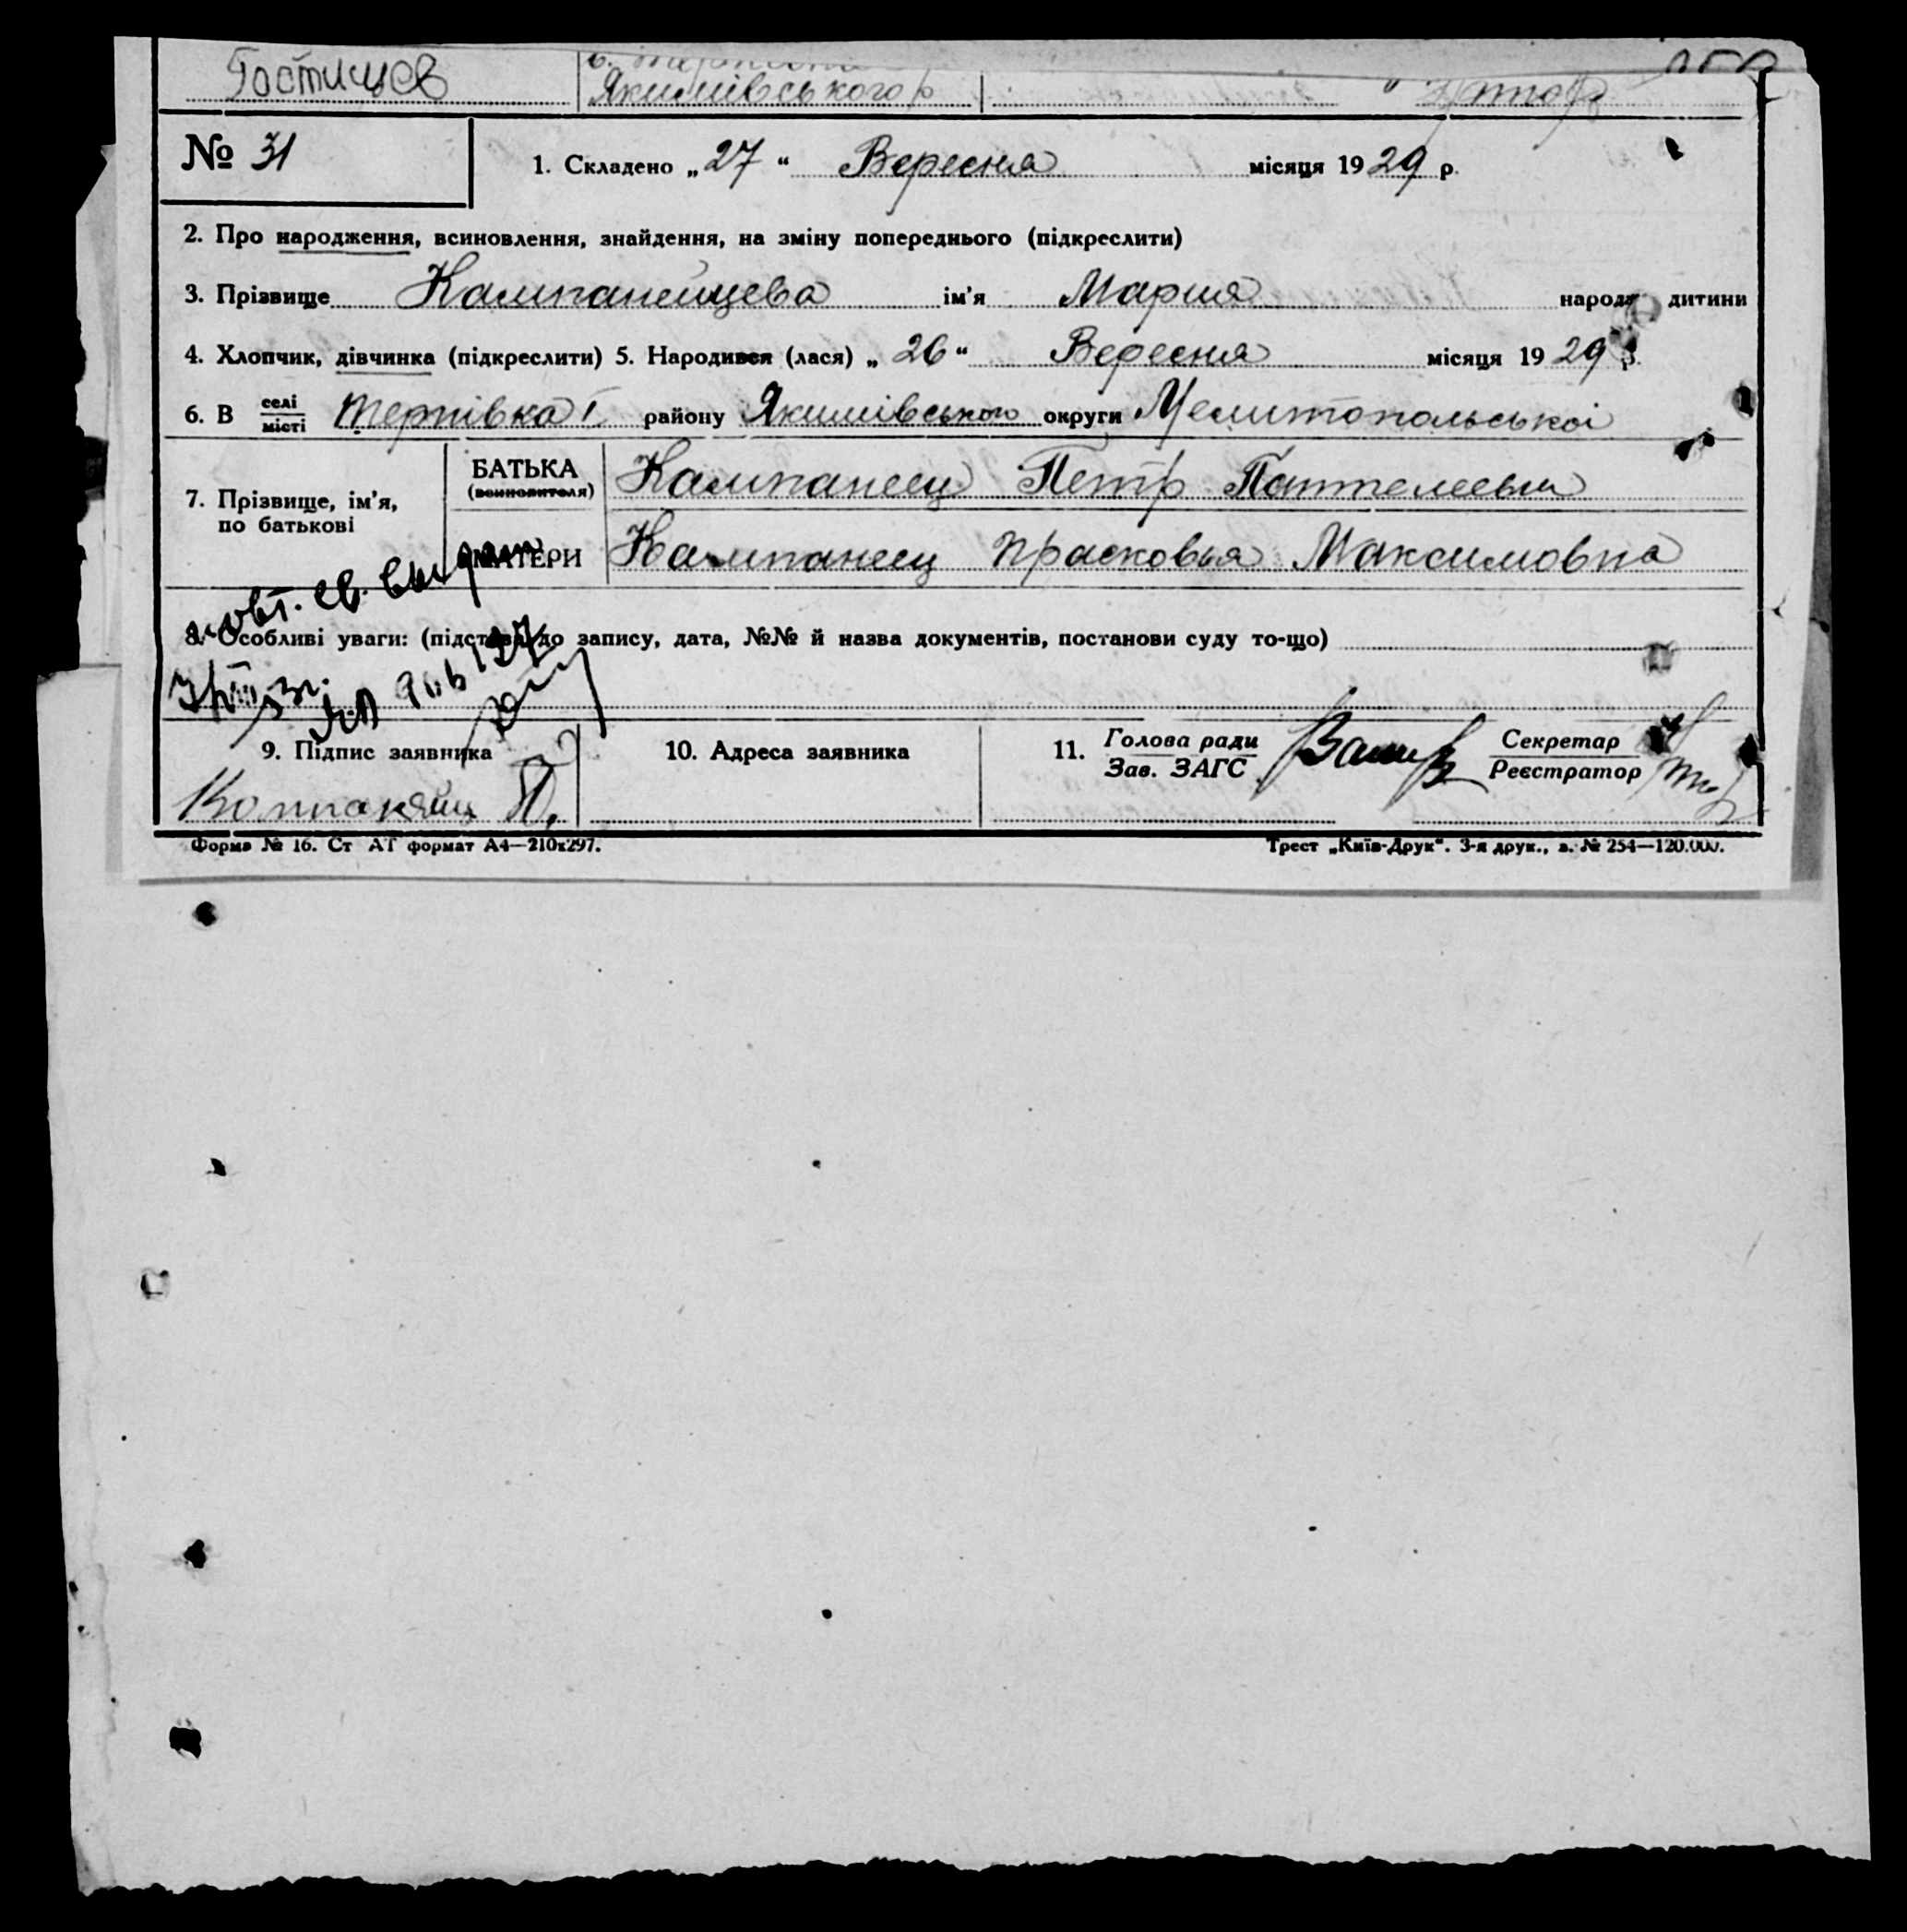 Гостищев
Якимівського р
№ 31
1. Складено „27“ Вересня місяця 1929 р.
2. Про народження, всиновлення, знайдення, на зміну попереднього (підкреслити)
3. Прізвище Кампанейцева ім’я Мария народж дитини
4. Хлопчик, дівчинка (підкреслити) 5. Народився (лася) „26“ Вересня місяця 1929 р.
6. В селі місті Терпівка I району Якимівського округи Мелитопольської
7. Прізвище, ім’я, по батькові
БАТЬКА (всиновителя) Кампанеец Петр Пантелееви
МАТЕРИ Кампанеец Прасковья Максимовна
повт. св. выдан
8. Особливі уваги: (підстава до запису, дата, №№ й назва документів, постанови суду то-що)
9. Підпис заявника
10. Адреса заявника
11. Голова ради Зав. ЗАГС
Секретар Реєстратор
Компаняиц П.
Форма № 16. Ст АТ формат А4—210х297.
Трест „Київ-Друк“. 3-я друк., з. № 254—120.000.